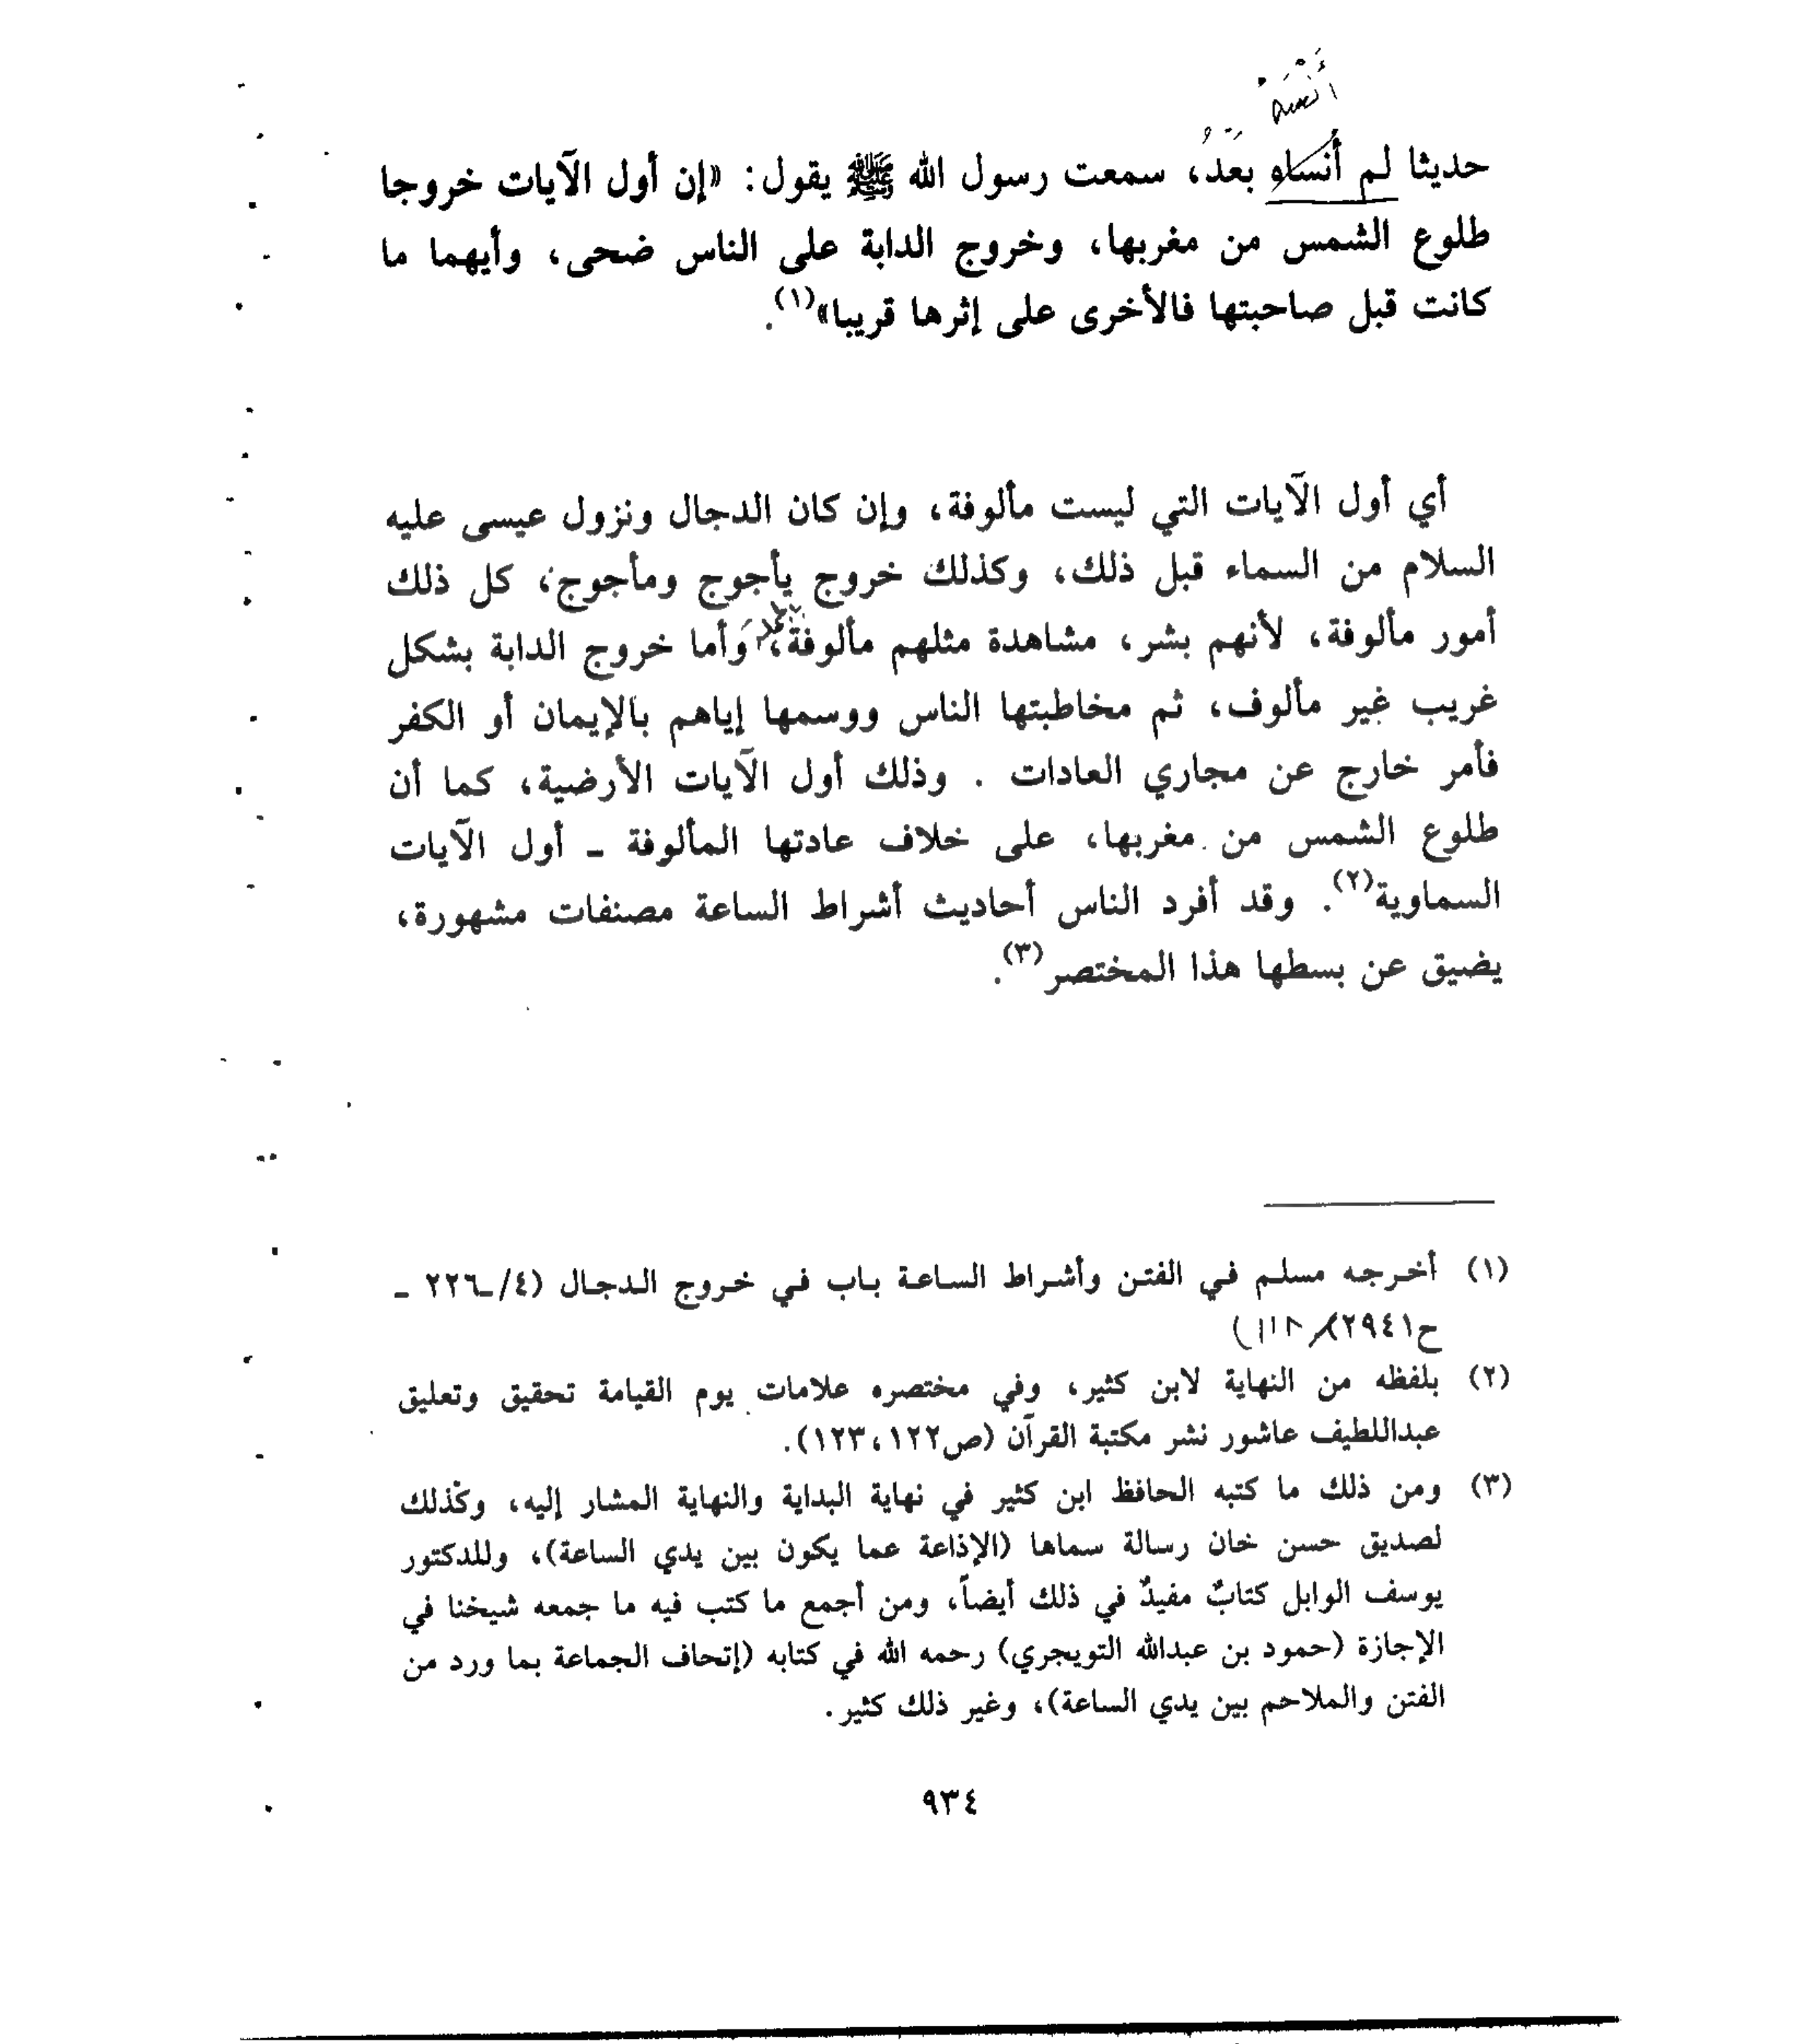 أَنْسَه
حديثا لم أنساه بعَدُ، سمعت رسول الله ﷺ يقول: «إن أول الآيات خروجا
طلوع الشمس من مغربها، وخروج الدابة على الناس ضحى، وأيهما ما
كانت قبل صاحبتها فالأخرى على إثرها قريبا»(١).
أي أول الآيات التي ليست مألوفة، وإن كان الدجال ونزول عيسى عليه
السلام من السماء قبل ذلك، وكذلك خروج يأجوج ومأجوج، كل ذلك
أمور مألوفة، لأنهم بشر، مشاهدة مثلهم مألوفة، وأما خروج الدابة بشكل
غريب غير مألوف، ثم مخاطبتها الناس ووسمها إياهم بالإيمان أو الكفر
فأمر خارج عن مجاري العادات . وذلك أول الآيات الأرضية، كما أن
طلوع الشمس من مغربها، على خلاف عادتها المألوفة ـ أول الآيات
السماوية(٢). وقد أفرد الناس أحاديث أشراط الساعة مصنفات مشهورة،
يضيق عن بسطها هذا المختصر(٣).
(١) أخرجه مسلم في الفتن وأشراط الساعة باب في خروج الدجال (٤/ـ٢٢٦ ـ
ح٢٩٤١)
(٢) بلفظه من النهاية لابن كثير، وفي مختصره علامات يوم القيامة تحقيق وتعليق
عبداللطيف عاشور نشر مكتبة القرآن (ص١٢٢، ١٢٣).
(٣) ومن ذلك ما كتبه الحافظ ابن كثير في نهاية البداية والنهاية المشار إليه، وكذلك
لصديق حسن خان رسالة سماها (الإذاعة عما يكون بين يدي الساعة)، وللدكتور
يوسف الوابل كتابٌ مفيدٌ في ذلك أيضاً، ومن أجمع ما كتب فيه ما جمعه شيخنا في
الإجازة (حمود بن عبدالله التويجري) رحمه الله في كتابه (إتحاف الجماعة بما ورد من
الفتن والملاحم بين يدي الساعة)، وغير ذلك كثير.
٩٣٤